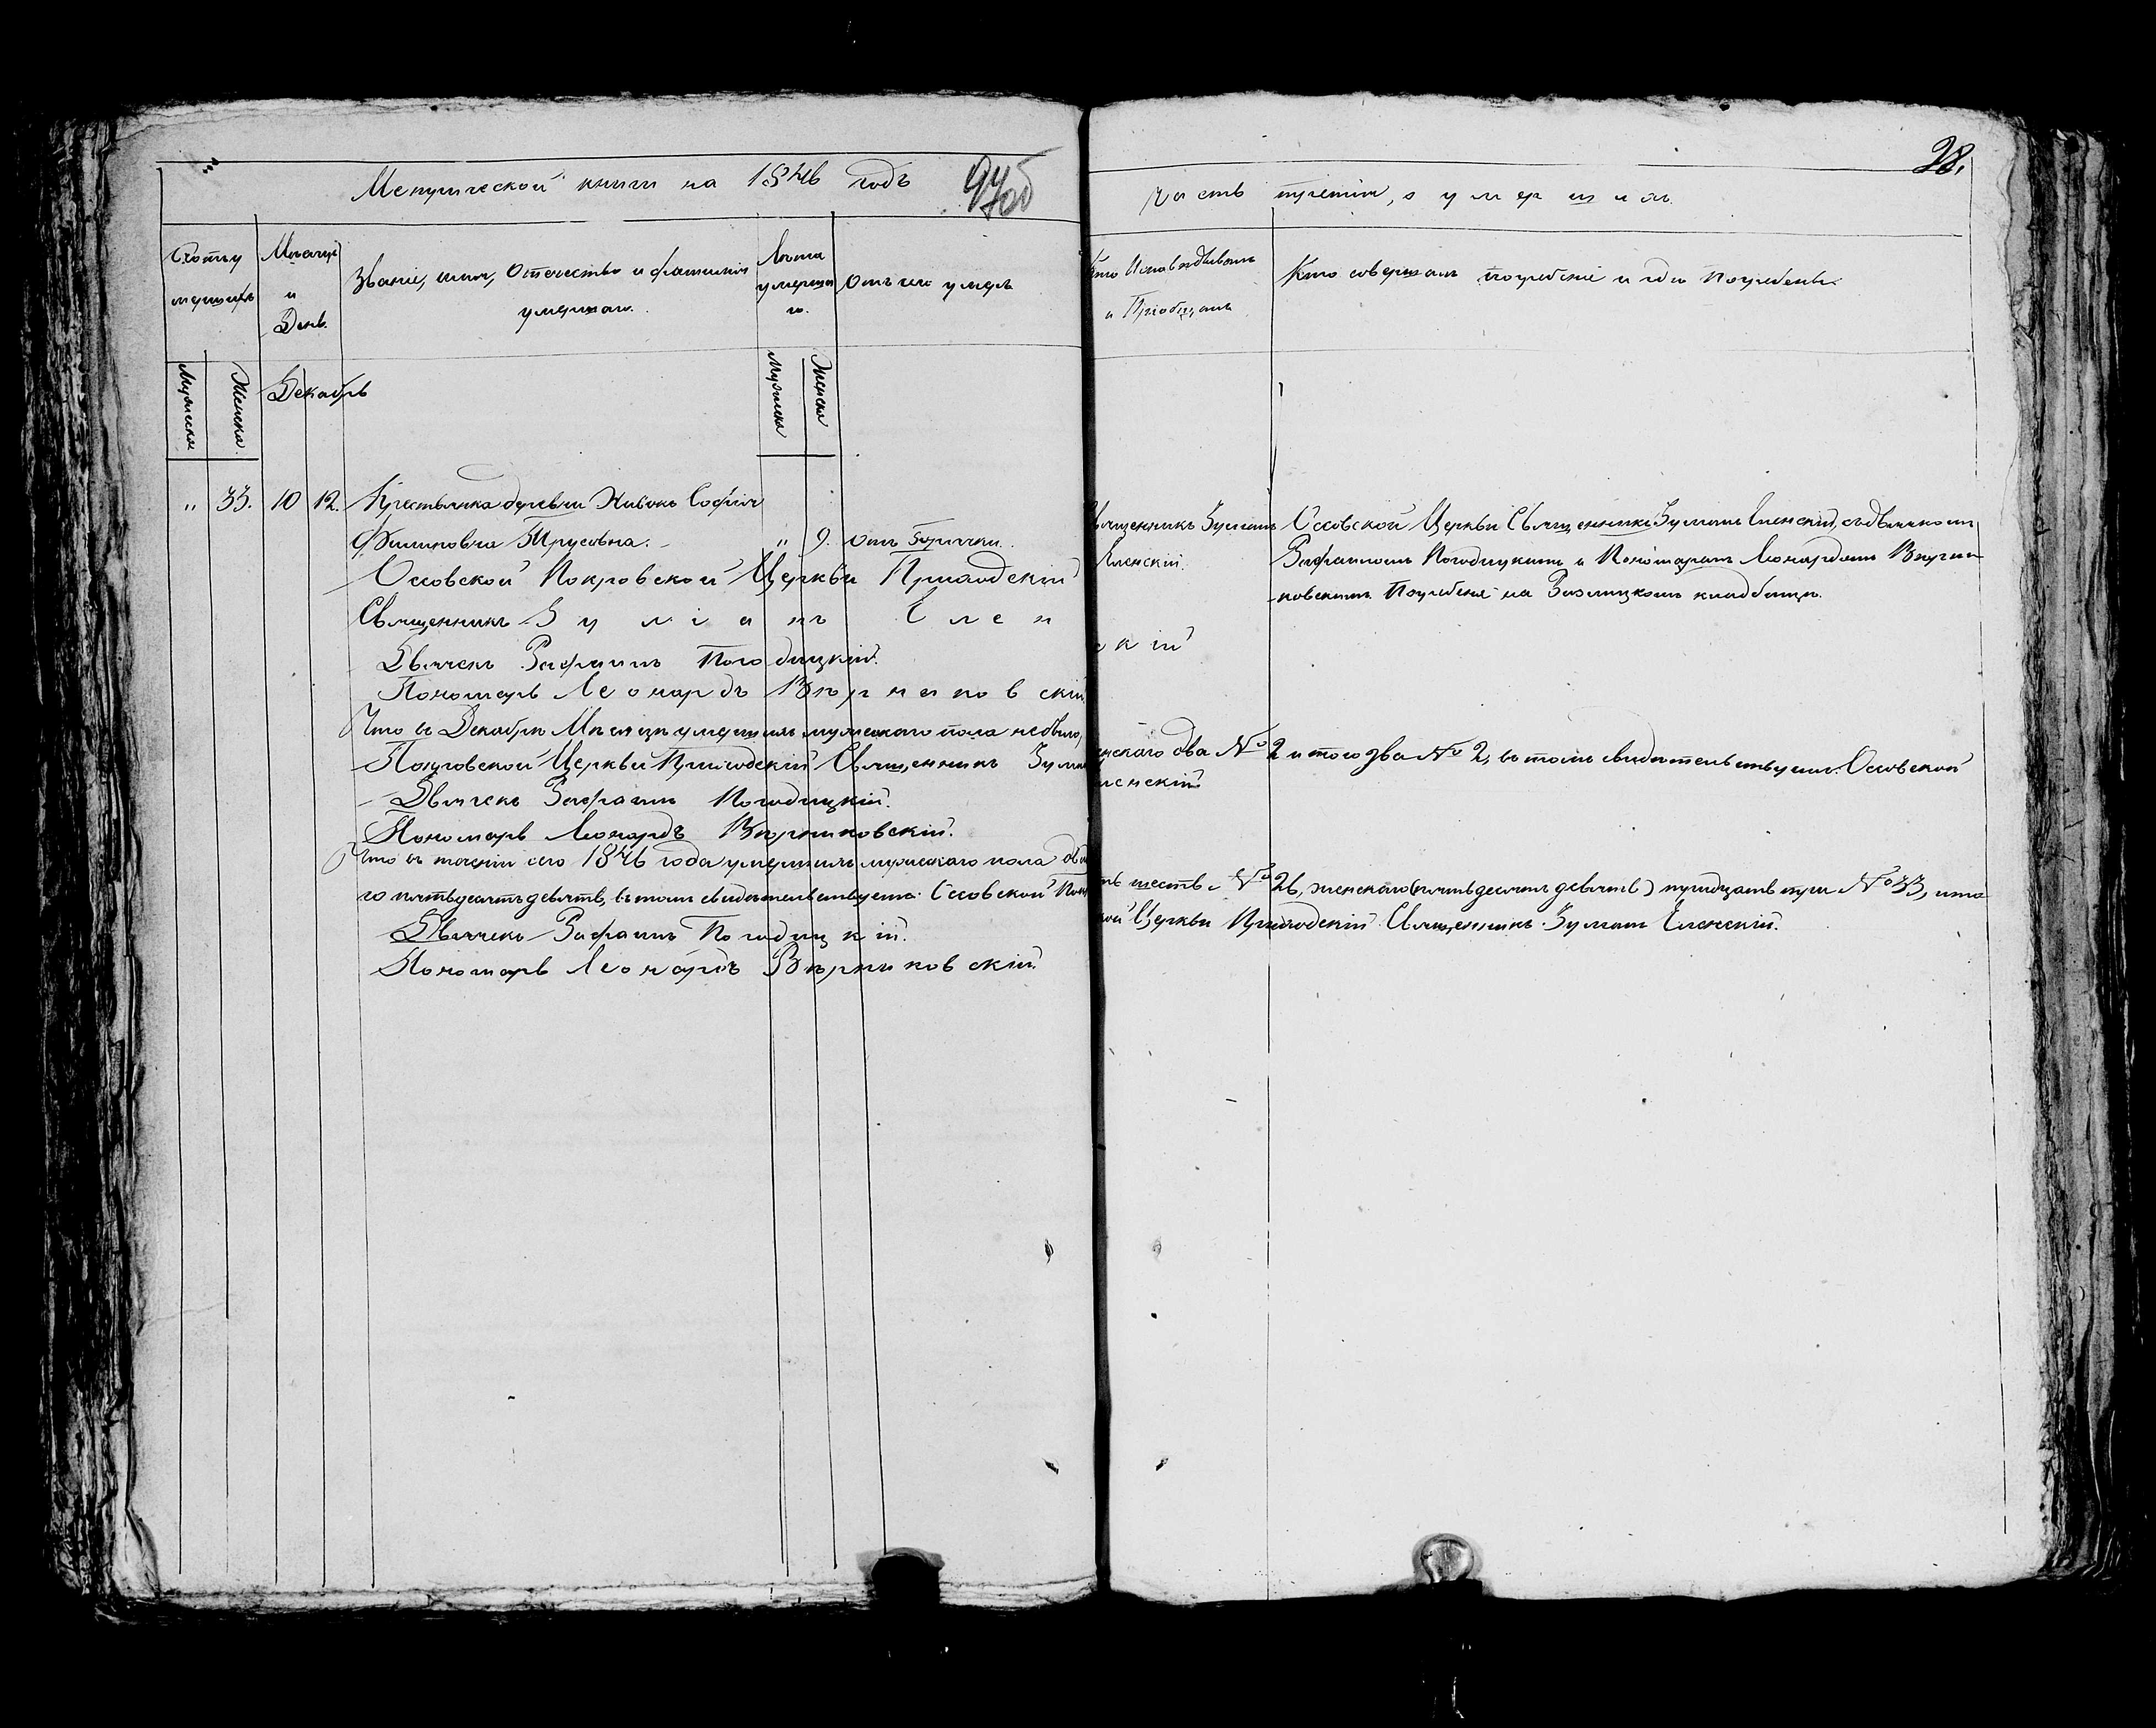 Метрической книги на 1846 годъ
945
часть третія, о умершихъ.
28.
Счетъ умершихъ
Мѣсяцъ и День.
Званіе, имя, Отечество и фамилія умершаго.
Лѣта умершаго.
Отъ чего умеръ
Кто Исповѣдывалъ и Пріобщалъ
Кто совершалъ погребеніе и гдѣ Погребенъ.
Мужеска
Женска.
Декабрь
Мужеска
Женска
" 33. 10 12. Крестьянка деревни Нивокъ Софія
Филиповна Трусовна. " 9. отъ Горячки.
Священникъ Зуліанъ Еленскій.
Оссовской Церкви Священникъ Зуліанъ Еленскій, съ дьячкомъ
Рафаиломъ Погодицкимъ и Пономаремъ Леонардомъ Вѣрни-
ковскимъ. Погребена на кладбищѣ.
Оссовской Покровской Церкви Приходскій
Священникъ Зуліанъ Еленскій
Дьячекъ Рафаилъ Погодицкій.
Пономарь Леонардъ Вѣрниковскій.
Что въ Декабрѣ Мѣсяцѣ умершихъ мужескаго пола небыло, женскаго два № 2 и того два № 2, въ томъ свидѣтельствуемъ. Оссовской
Покровской Церкви Приходскій Священникъ Зуліанъ Еленскій
Дьячекъ Рафаилъ Погодицкій.
Пономарь Леонардъ Вѣрниковскій.
Что въ теченіи сего 1846 года умершихъ мужескаго пола двадцать шесть № 26, женскаго (пятьдесятъ девять) тридцать три № 33, ито-
го пятьдесятъ девять, въ томъ свидѣтельствуемъ. Оссовской Покровской Церкви Приходскій Священникъ Зуліанъ Еленскій.
Дьячекъ Рафаилъ Погодицкій.
Пономарь Леонардъ Вѣрниковскій.